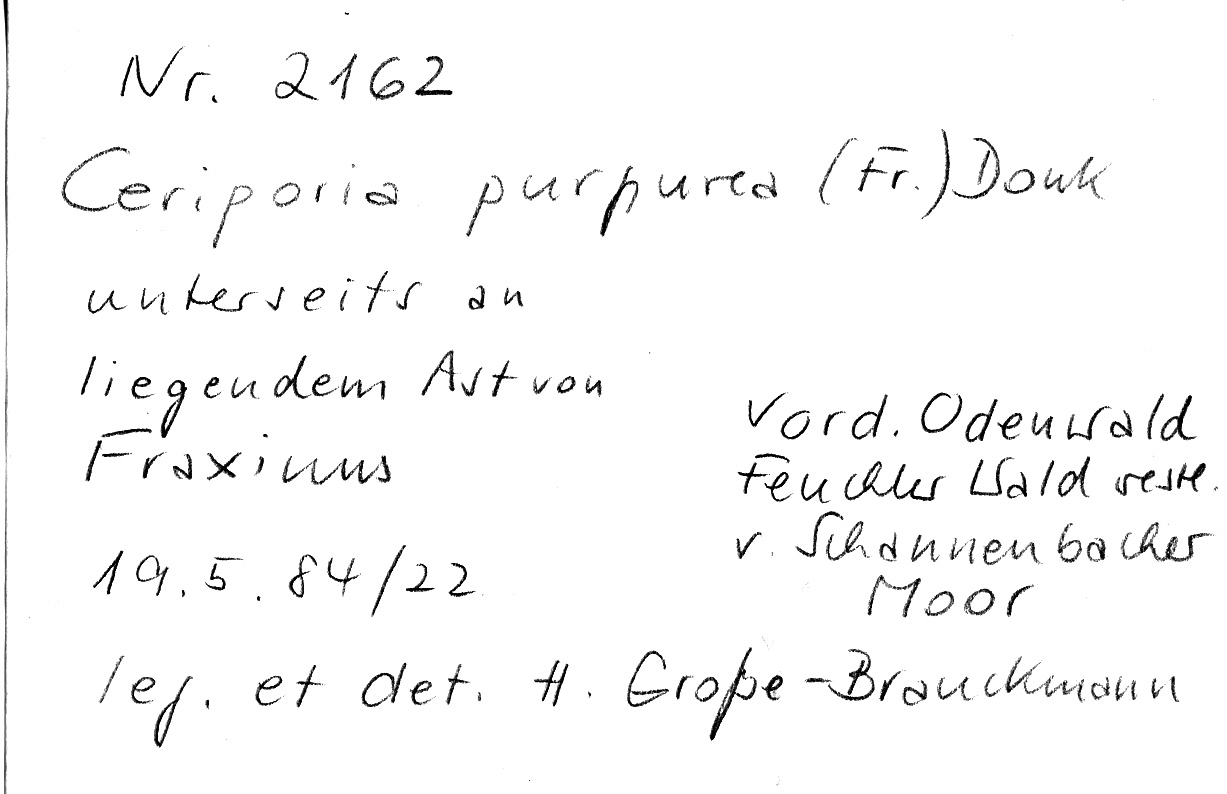 Nr. 2162
Ceriporia purpurea (Fr.) Donk
unterseits an
liegendem Ast von
Fraxinus
Vord. Odenwald
Feuchter Wald
v. Schannenbacher
Moor
19.5.84/22
leg. et det. H. Große-Brauckmann